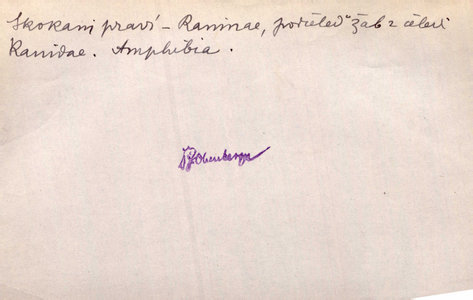 Skokani praví – Raninae, podčeleď žab z čeledi
Ranidae. Amphibia.
Obenberger